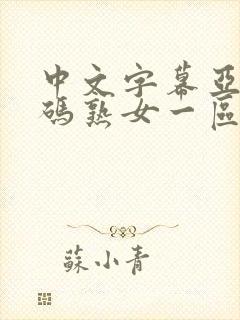 中文字幕亞
碼熟女一區
蘇小青